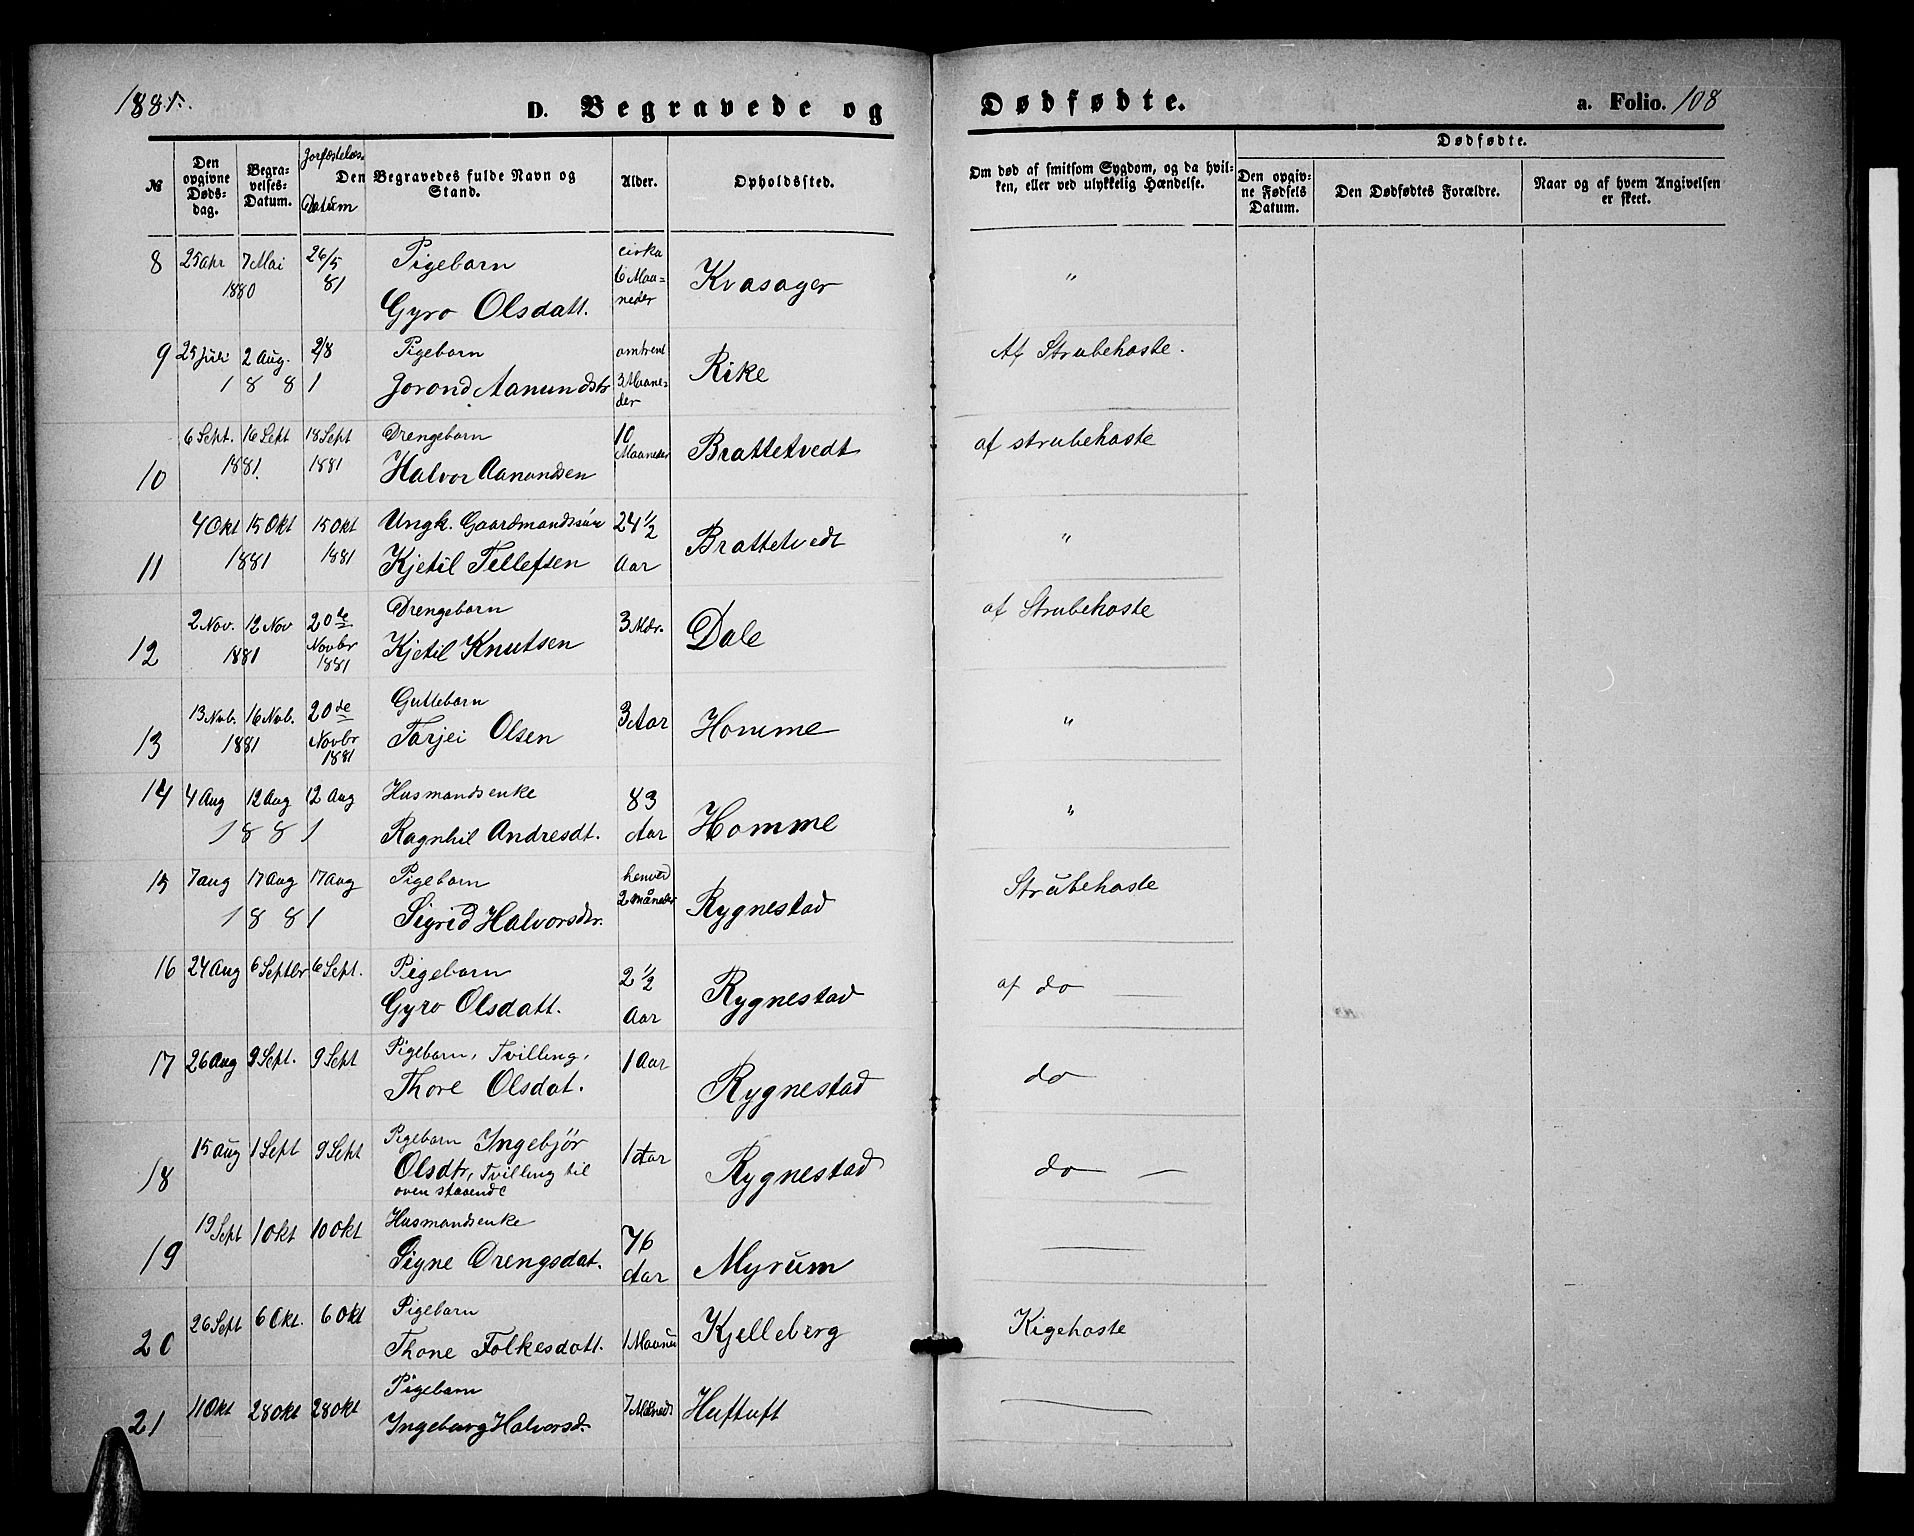 1881.
D. Begravede og Dødfødte.
a. Folio. 108
№
Den opgivne Døds-dag.
Begra-velses-Datum.
Jorfæstelses Datum
Den Begravedes fulde Navn og Stand.
Alder.
Opholdssted.
Om død af smitsom Sygdom, og da hvil-ken, eller ved ulykkelig Hændelse.
Dødfødte.
Den opgiv-ne Fødsels Datum.
Den Dødfødtes Forældre.
Naar og af hvem Angivelsen er skeet.
8 25 Apr 7 Mai 1880 26/5 81 Pigebarn Gyro Olsdatt. cirka 6 Maa-neder Kvasager "
9 25 Juli 2 Aug. 2/8 1881 Pigebarn Jorond Aanundsdtr omtrent 3 Maane-der Rike Af Strubehoste.
10 6 Sept. 16 Sept 1881 18 Sept 1881 Drengebarn Halvor Aanondsen 10 Maaneder Brattetvedt af strubehoste
11 4 Okt 15 Okt 1881 15 Okt 1881 Ungk. Gaardmandssøn Kjetil Tellefsen 24 1/2 Aar Brattetvedt "
12 2 Nov. 12 Nov 1881 20de Novbr 1881 Drengebarn Kjetil Knutsen 3 Mdr. Dale af Strubehoste
13 13 Nob. 16 Nob. 1881 20de Novbr 1881 Guttebarn Tarjei Olsen 3 Aar Homme "
14 4 Aug 12 Aug 12 Aug 1881 Husmandsenke Ragnhil Andresdt. 83 Aar Homme "
15 7 aug 17 Aug 17 Aug 1881 Pigebarn Sigrid Halvorsdtr. henved 2 måneder Rygnestad Strubehoste
16 24 Aug 6 Septbr 6 Sept. Pigebarn Gyro Olsdatt. 2 1/2 Aar Rygnestad af do
17 26 Aug 9 Sept. 9 Sept Pigebarn, Tvilling, Thore Olsdat. 1 Aar Rygnestad do
18 15 Aug 1 Sept 9 Sept Pigebarn Ingebjør Olsdtr, Tvilling til oven staaende 1 Aar Rygnestad do
19 19 Sept 1 Okt 10 Okt Husmandsenke Signe Drengsdat. 76 Aar Myrum
20 26 Sept 6 Okt. 6 Okt Pigebarn Thone Folkesdatt. 1 Maaned Kjelleberg Kigehoste
21 11 Okt 28 Okt 28 Okt Pigebarn Ingeborg Halvorsd. 7 Måned Huftuft